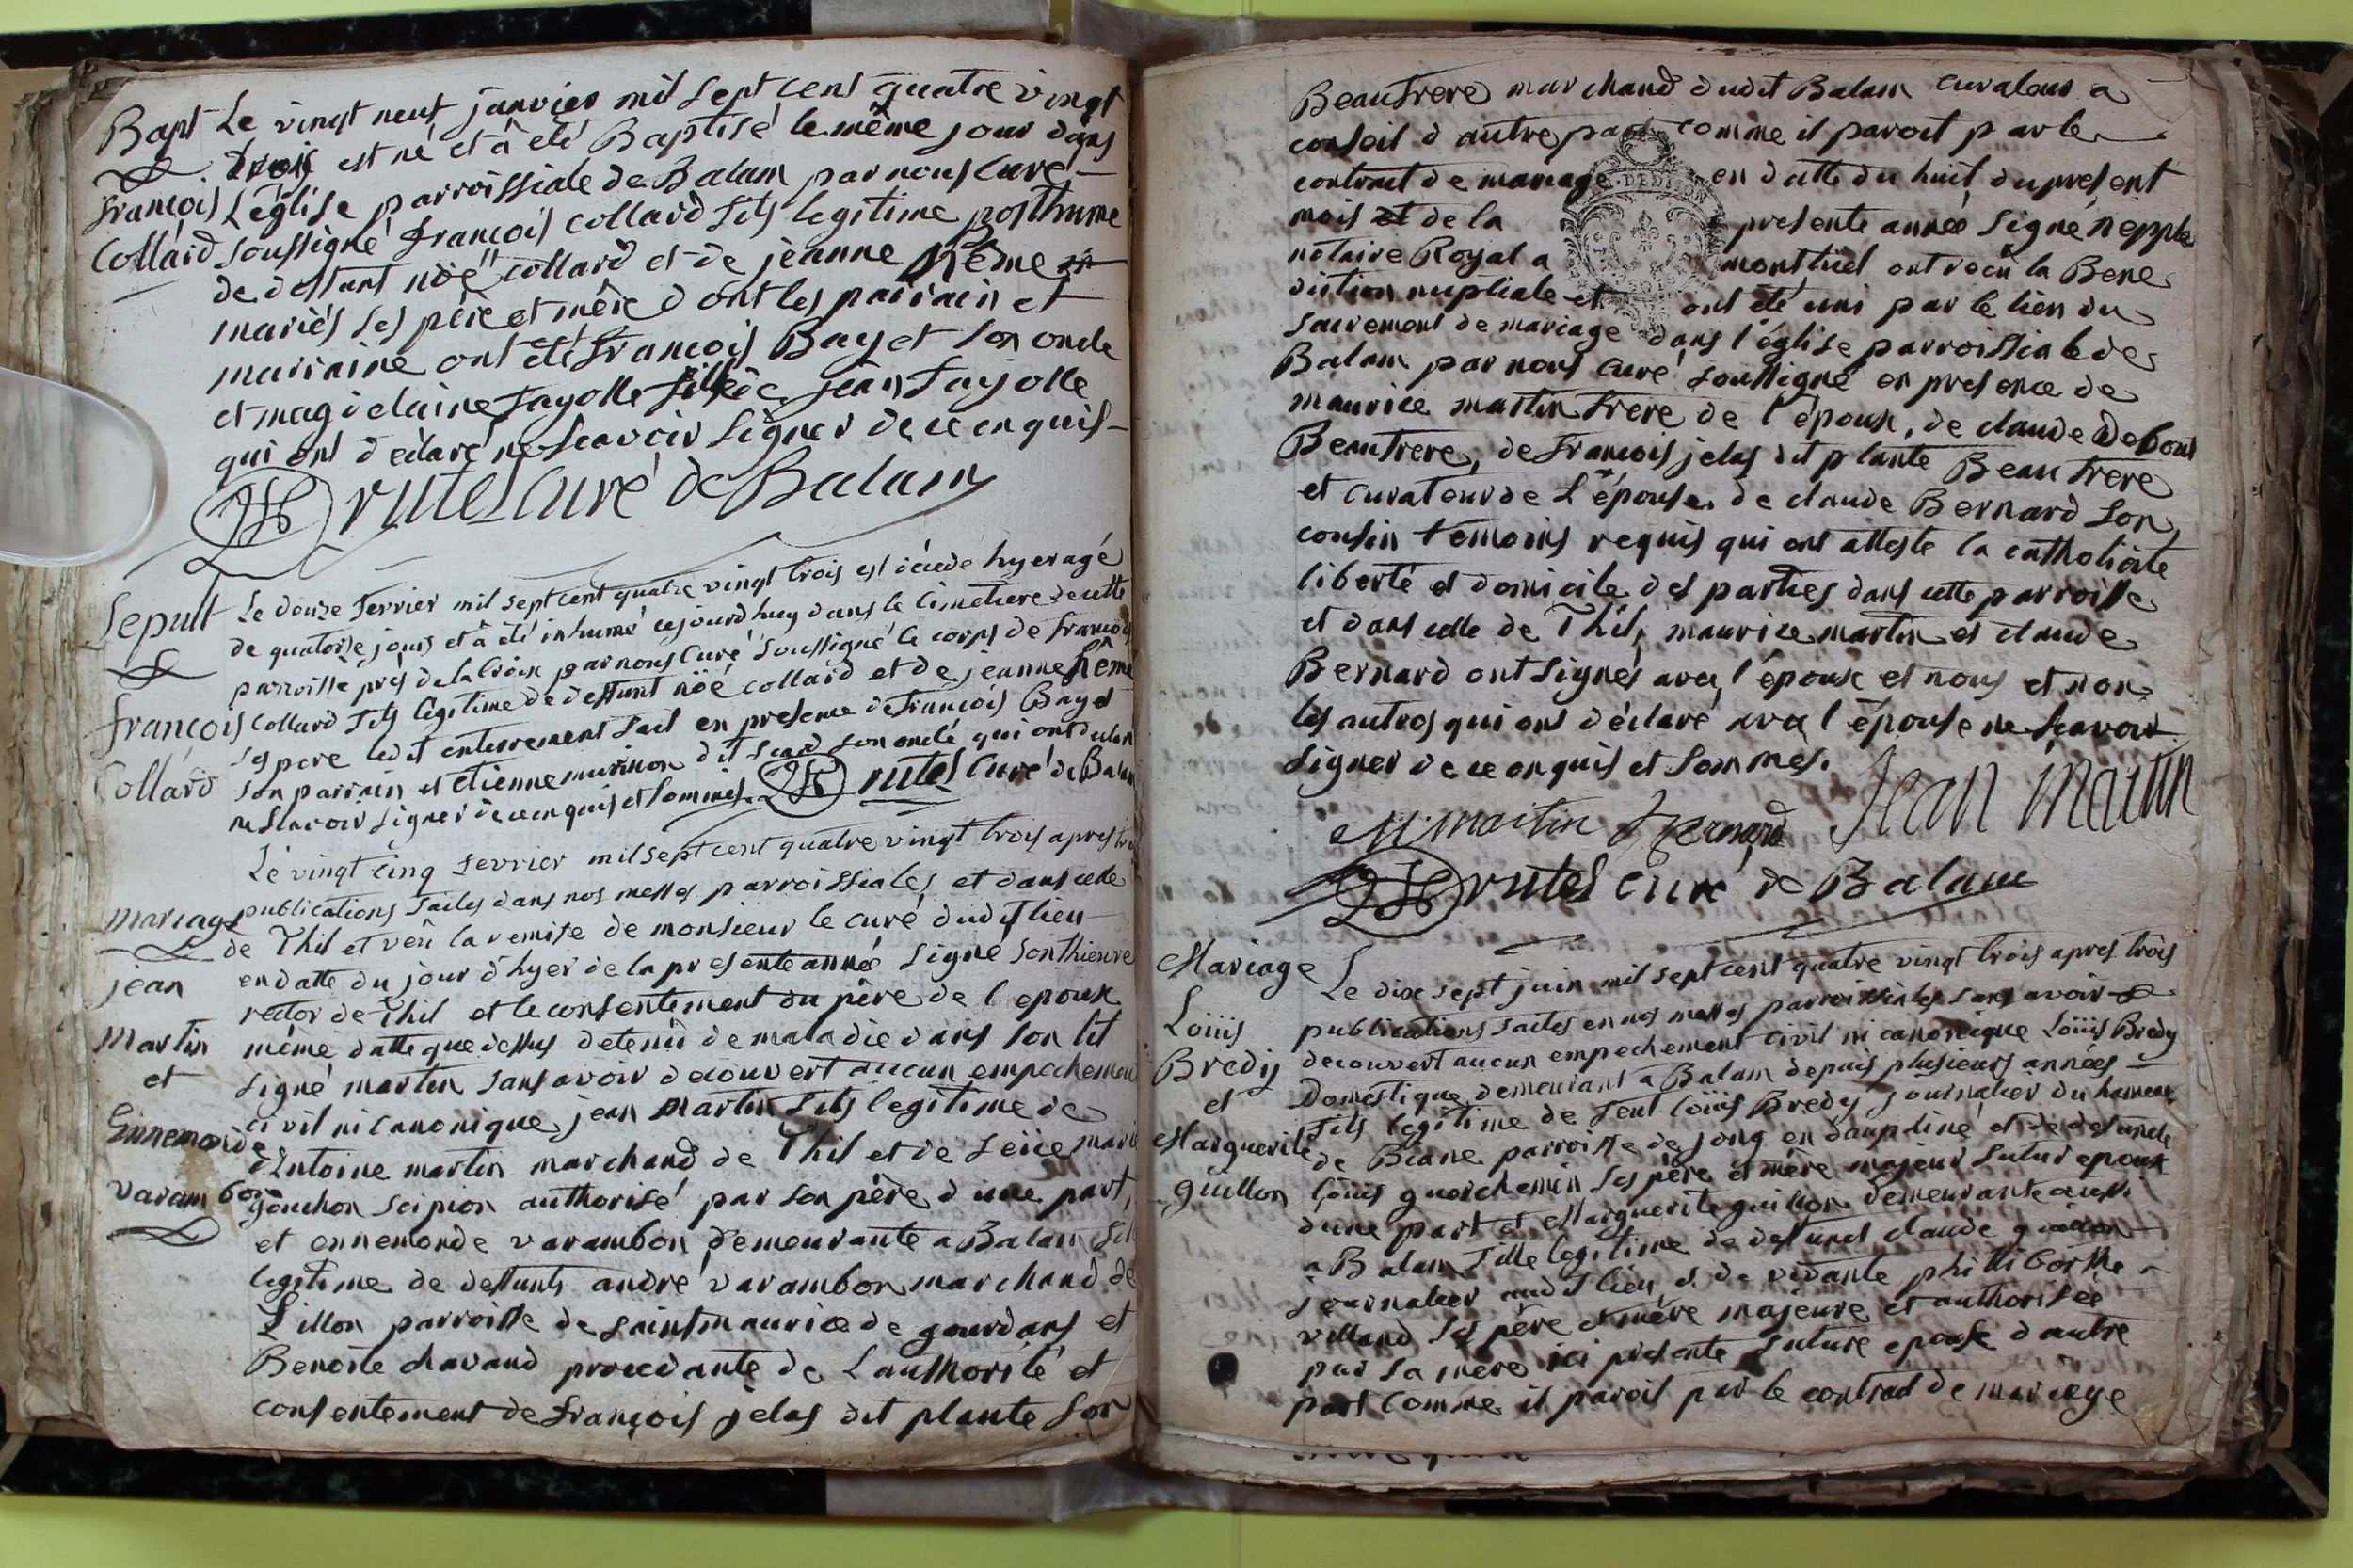 Bapt Le vingt neuf janvier mil sept cent quatre vingt
trois est né et â été Baptisé le même jour dans
françois L'église parroissiale de Balam par nous Curé
Collard soussigné françois collard fils legitime posthume
de deffunt nöé collard et de jeanne Rême
mariés ses père et mère dont les parrain et
marraine ont été françois Bayet son oncle
et magdelaine fayolle fille de jean fayolle
qui ont déclaré ne scavoir signer de ce enquis
Brutel curé de Balam
Sepult Le douze fevrier mil sept cent quatre vingt trois est décédé hyer agé
de quatorse jours et â été inhumé cejourdhuy dans le Cimetiere de cette
parroisse près de la Croix par nous Curé soussigné le corps de françois
françois Collard fils legitime de deffunt nöé collard et de jeanne Rême
Collard ledit enterrement fait en presence de françois Bayet
son parrain et etienne murinon dit son oncle qui ont declaré
ne scavoir signer de ce enquis et sommés. Brutel Curé de Balam
Le vingt cinq fevrier mil sept cent quatre vingt trois apres trois
mariage publications faites dans nos messes parroissiales et dans celle
de Thil et veu la remise de monsieur le curé dudit lieu
jean en datte du jour d'hyer de la presente année signé Sonthieure
rector de Thil et le consentement du père de l'epoux
Martin même datte que dessus detenü de maladie dans son lit
et signé martin sans avoir decouvert aucun empechement
civil ni canonique, jean martin fils legitime de
Ennemonde antoine martin marchand de Thil et de feüe marie
varambon gouchon scipion authorisé par son père d'une part,
et ennemonde varambon demeurante a Balan fille
legitime de deffunts andré varambon marchand de
Lillon parroisse de saint maurice de gourdans et
Benoite chavand procedante de L'authorité et
consentement de françois jelas dit plante son
Beaufrere marchand dudit Balam curateur a
conseil d'autre part comme il paroit par le
contract de mariage en datte du huit du present
mois et de la presente année signé nepple
notaire Royal a montluel ont recu la Bene
diction nuptiale et ont été uni par le lien du
sacrement de mariage dans l'église parroissiale de
Balam par nous curé soussigné en presence de
maurice martin frere de l'époux, de claude Debour
Beaufrere, de françois jelas dit plante Beaufrere
et curateur de L'épouse, de claude Bernard son
cousin temoins requis qui ont attesté la catholicité
liberté et domicile des parties dans cette parroisse
et dans celle de Thil, maurice martin et claude
Bernard ont signés avec l'époux et nous et non
les autres qui ont déclaré avec l'épouse ne scavoir
signer de ce enquis et sommés.
M martin Bernard Jean Martin
Brutel curé de Balam
Mariage Le dix sept juin mil sept cent quatre vingt trois apres trois
Loüis publications faites en nos messes parroissiales sans avoir
Bredy decouvert aucun empechement civil ni canonique Loüis Bredy
et Domestique demeurant a Balam depuis plusieurs années
fils legitime de feut loüis Bredy journalier du hameau
Marguerite de Biane parroisse de jong en dauphiné et de defuncte
guillon loüis guerchemin ses père et mère majeur futur epoux
d'une part et Marguerite guillon demeurante aussi
a Balam fille legitime de deffunct claude guillon
journalier audit lieu et de vivante philliberthe
villand ses père et mère majeure et authorisée
par sa mère ici presente future epouse d'autre
part comme il paroit par le contract de mariage